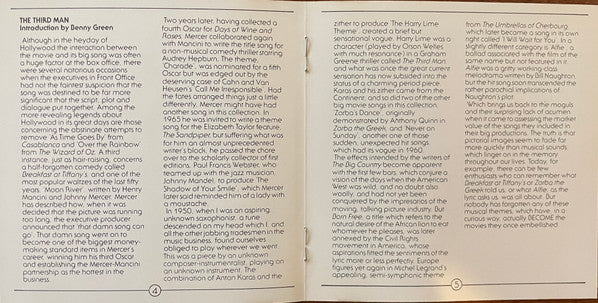 THE THIRD MAN
Introduction by Benny Green
Although in the heyday of
Hollywood the interaction between
the movie and its big song was often
a huge factor at the box office, there
were several notorious occasions
when the executives in Front Office
had not the faintest suspicion that the
song was destined to be far more
significant that the script, plot and
dialogue put together. Among the
more revealing legends about
Hollywood in its great days are those
concerning the abstinate attempts to
remove 'As Time Goes By' from
Casablanca and 'Over the Rainbow'
from The Wizard of Oz. A third
instance, just as hair-raising, concerns
a half-forgotten comedy called
Breakfast at Tiffany's, and one of the
most popular waltzes of the last fifty
years. 'Moon River', written by Henry
Mancini and Johnny Mercer. Mercer
has described how, when it was
decided that the picture was running
too long, the executive producer
announced that 'that damn song can
go'. That damn song went on to
become one of the biggest money-
making standard items in Mercer's
career, winning him his third Oscar
and establishing the Mercer-Mancini
partnership as the hottest in the
business.
Two years later, having collected a
fourth Oscar for Days of Wine and
Roses, Mercer collaborated again
with Mancini to write the title song for
a non-musical comedy thriller starring
Audrey Hepburn. The theme,
'Charade', was nominated for a fifth
Oscar but was edged out by the
deserving case of Cahn and Van
Heusen's 'Call Me Irresponsible'. Had
the fates arranged things just a little
differently, Mercer might have had
another song in this collection. In
1965 he was invited to write a theme
song for the Elizabeth Taylor feature
The Sandpiper, but suffering what was
for him an almost unprecedented
writer's block, he passed the chore
over to the scholarly collector of first
editions, Paul Francis Webster, who
teamed up with the jazz musician,
Johnny Mandel, to produce 'The
Shadow of Your Smile', which Mercer
later said reminded him of a lady with
a moustache.
In 1950, when I was an aspiring
unknown saxophonist, a tune
descended on my head which I, and
all the other jobbing tradesmen in the
music business, found ourselves
obliged to play wherever we went.
This was a piece by an unknown
composer-instrumentalist, playing on
an unknown instrument. The
combination of Anton Karas and the
4
zither to produce 'The Harry Lime
Theme', created a brief but
sensational vogue. Harry Lime was a
character (played by Orson Welles
with much resonance) in a Graham
Greene thriller called The Third Man,
and what was once the great current
sensation has now subsided into the
status of a charming period piece.
Karas and his zither came from the
Continent, and so did two of the other
big movie songs in this collection.
'Zorba's Dance', originally
demonstrated by Anthony Quinn in
Zorba the Greek, and 'Never on
Sunday', another one of those
sudden, unexpected hir songs
which had its vogue in 1960.
The effects intended by the writers of
The Big Country become apparent
with the first few bars, which conjure a
vision of the days when the American
West was wild, and no doubt also
woolly, and had not yet been
conquered by the impresarios of the
moving, talking picture industry. But
Born Free, a title which refers to the
natural desire of the African lion to eat
whomever he pleases, was later
annexed by the Civil Rights
movement in America, whose
aspirations fitted the sentiments of the
lyric more or less perfectly. Europe
figures yet again in Michel Legrand's
appealing, semi-symphonic theme
from The Umbrellas of Cherbourg,
which later became a song in its own
right called 'I Will Wait for You'. In a
slightly different category is 'Alfie', a
ballad associated with the film of the
same name but not featured in it.
Alfie was a gritty working-class
melodrama written by Bill Naughton,
but the hit song soon transcended the
rather parochial implications of
Naughton's plot.
Which brings us back to the moguls
and their surprising lack of acumen
when it came to assessing the market
value of the songs they included in
their big productions. The truth is that
pictorial images seem to fade far
more quickly than musical sounds
which linger on in the memory
throughout our lives. Today, for
example, there can be few
enthusiasts who can remember what
Breakfast at Tiffany's or Zorba the
Greek told us, or what Alfie, as the
lyric asks us, was all about. But
nobody has forgotten any of these
musical themes, which have, in a
curious way, actually BECOME the
movies they once embellished
5